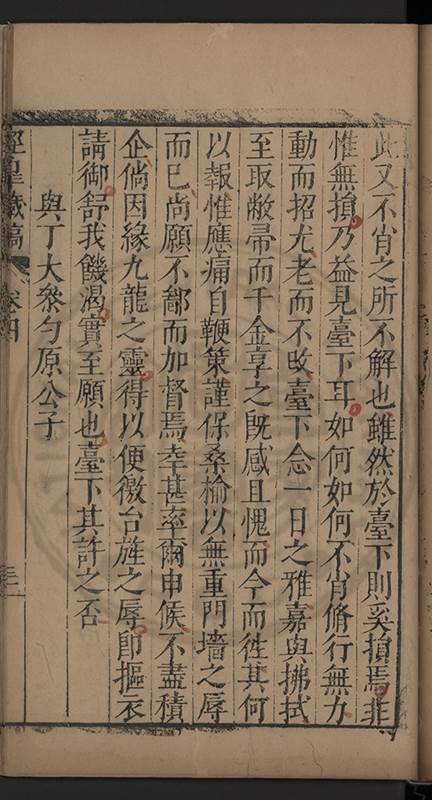 此又不肖之所不解也雖然於臺下則奚損焉非
惟無損乃益見臺下耳如何如何不肖脩行無力
動而招尤老而不改臺下念一日之雅嘉與拂拭
至取敝帚而千金享之既感且愧而今而徃其何
以報惟應痛自鞭策謹保桑榆以無重門墻之辱
而已尚願不鄙而加督焉幸甚率爾申候不盡積
企倘因緣九龍之靈得以便徼台旌之辱卽摳衣
請御舒我饑渴實至願也臺下其許之否
與丁大參勺原公子
涇臯藏稿
卷四
三